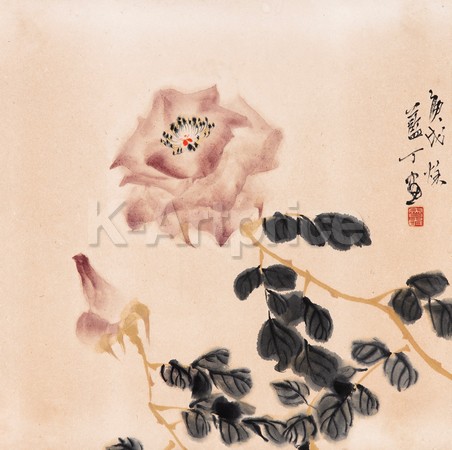 庚戌秋
藍丁画
K-Artprice